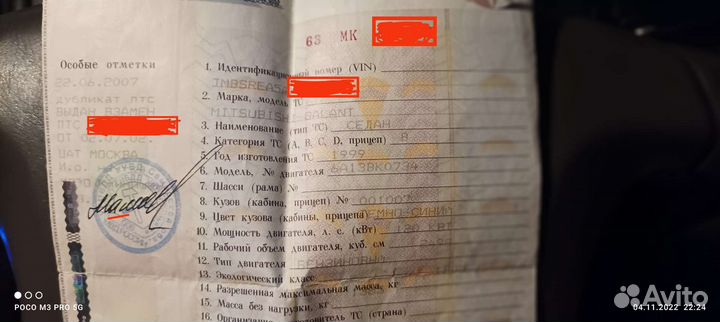 63 МК
Особые отметки
22.06.2007
дубликат птс
ВЫДАН ВЗАМЕН
ПТС
ОТ 02.07.02.
ЦАТ МОСКВА
И.о.
1. Идентификационный номер (VIN)
JMBSREA5A
2. Марка, модель ТС
MITSUBISHI GALANT
3. Наименование (тип ТС) СЕДАН
4. Категория ТС (A, B, C, D, прицеп) B
5. Год изготовления ТС 1999
6. Модель, № двигателя 6A13BK0734
7. Шасси (рама) №
8. Кузов (кабина, прицеп) № 001007
9. Цвет кузова (кабины, прицепа) ТЕМНО-СИНИЙ
10. Мощность двигателя, л. с. (кВт)
11. Рабочий объем двигателя, куб. см
12. Тип двигателя БЕНЗИНОВЫЙ
13. Экологический класс
14. Разрешенная максимальная масса, кг
15. Масса без нагрузки, кг
16. ТС (страна)
POCO M3 PRO 5G
04.11.2022 22:24
Avito